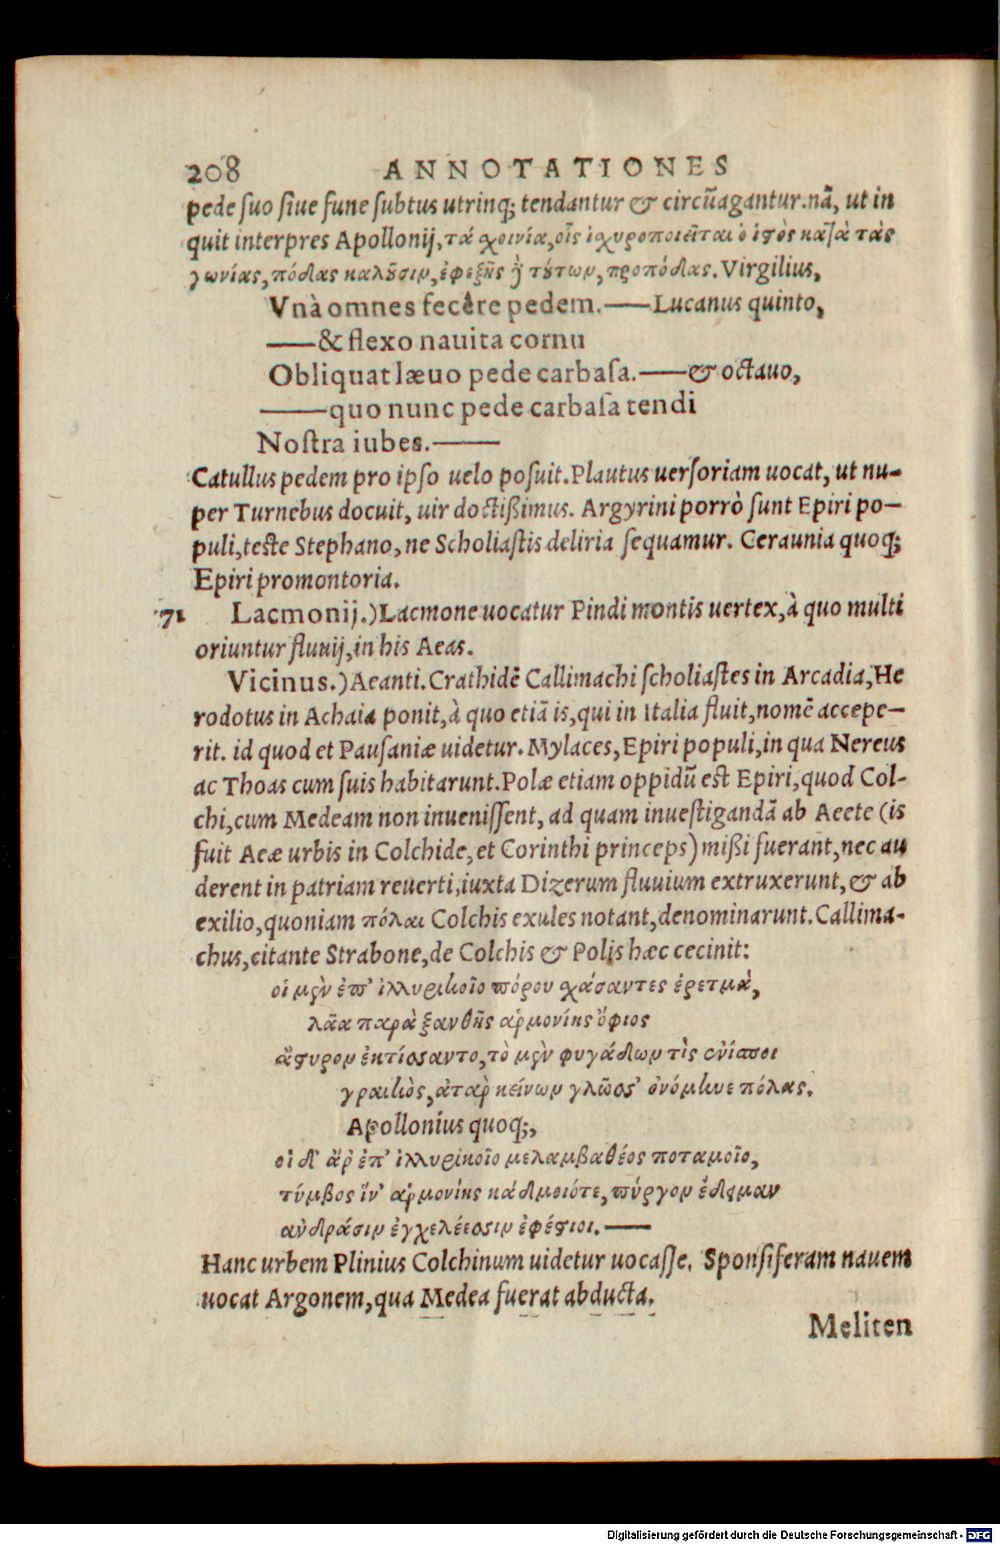 208 ANNOTATIONES
pede ſuo ſiue fune ſubtus utrinq; tendantur & circũagantur. nã, ut in
quit interpres Apollonij, τὰ χοινία, οἷς ἰχυροποιεῖται ὁ ἱστὸς κατὰ τὰς
γωνίας, πόδας καλοῦσιν, ἐφεξῆς ἢ τούτων, προπόδας. Virgilius,
Vnà omnes fecêre pedem.—Lucanus quinto,
—& flexo nauita cornu
Obliquat læuo pede carbaſa.—& octauo,
—quo nunc pede carbaſa tendi
Noſtra iubes.—
Catullus pedem pro ipſo uelo poſuit. Plautus uerſoriam uocat, ut nu-
per Turnebus docuit, uir doctißimus. Argyrini porrò ſunt Epiri po-
puli, teſte Stephano, ne Scholiaſtis deliria ſequamur. Ceraunia quoq;
Epiri promontoria.
71 Lacmonij.) Lacmone uocatur Pindi montis uertex, à quo multi
oriuntur fluuij, in his Aeas.
Vicinus.) Aeanti. Crathidẽ Callimachi ſcholiaſtes in Arcadia, He
rodotus in Achaia ponit, à quo etiã is, qui in Italia fluit, nomẽ accepe-
rit. id quod et Pauſaniæ uidetur. Mylaces, Epiri populi, in qua Nereus
ac Thoas cum ſuis habitarunt. Polæ etiam oppidũ eſt Epiri, quod Col-
chi, cum Medeam non inueniſſent, ad quam inueſtigandã ab Aeete (is
fuit Aeæ urbis in Colchide, et Corinthi princeps) mißi fuerant, nec au
derent in patriam reuerti, iuxta Dizerum fluuium extruxerunt, & ab
exilio, quoniam πόλαι Colchis exules notant, denominarunt. Callima-
chus, citante Strabone, de Colchis & Polis hæc cecinit:
οἱ μὲν ἐπ' ἰλλυρικοῖο πόρου χάσαντες ἐρετμὰ,
λᾶα παρὰ ξανθῆς ἁρμονίης ὄφιος
ἄστυρον ἐκτίσσαντο, τὸ μὲν φυγάδων τὶς ἐνίσποι
γραικὸς, ἀτὰρ κείνων γλῶσσ' ὀνόμηνε πόλας.
Apollonius quoq;,
οἱ δ' ἄρ' ἐπ' ἰλλυρικοῖο μελαμβαθέος ποταμοῖο,
τύμβος ἵν' ἁρμονίης κάδμοιότε, πύργον ἔδειμαν
ἀνδράσιν ἐγχελέεσσιν ἐφέστιοι.—
Hanc urbem Plinius Colchinum uidetur uocaſſe. Sponſiferam nauem
uocat Argonem, qua Medea fuerat abducta.
Meliten
Digitalisierung gefördert durch die Deutsche Forschungsgemeinschaft - DFG